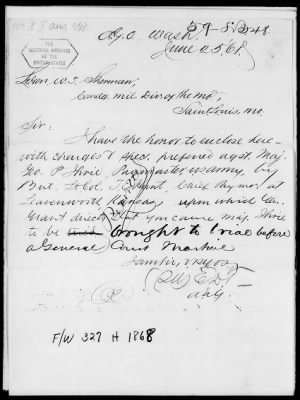 A.G.O. Wash.
June 25, 68.
THE NATIONAL ARCHIVES OF THE UNITED STATES
W. T. Sherman,
Comdg. Mil Div of the Mo,
Saint Louis, Mo.
Sir:
I have the honor to enclose here-
with charges & spec. preferred agst. Maj.
Geo. P. Paymaster, by
Bvt. Lt. Col. Chief Paymr. at
Leavenworth Kansas upon which Gen.
Grant directs that you cause Maj.
to be brought to trial before
a General Court Martial
I am Sir, &c
A.A.G.
F/W 327 H 1868